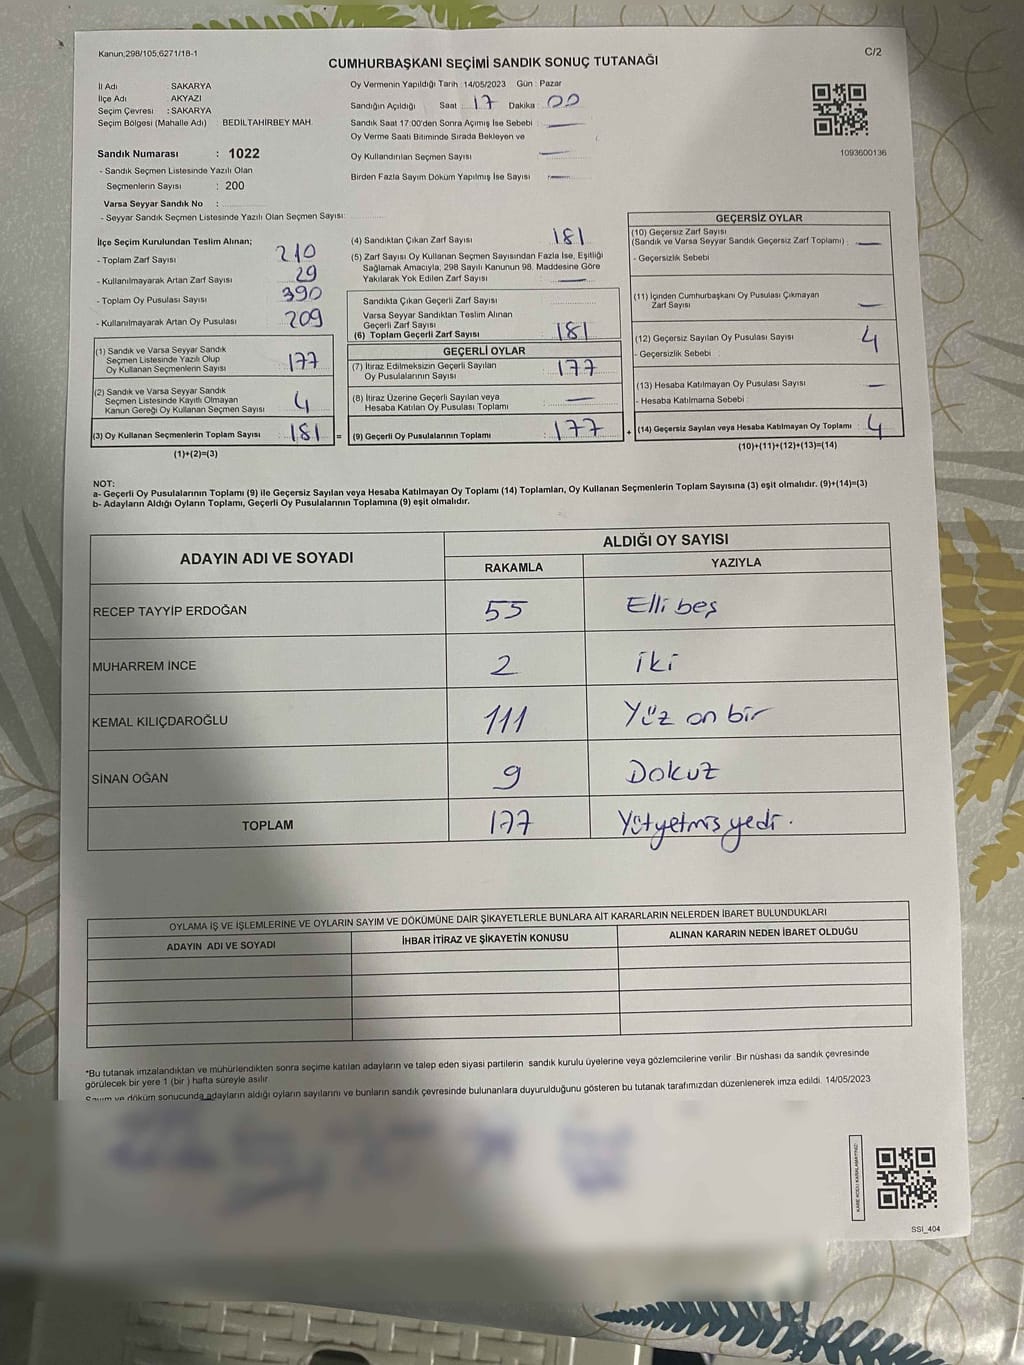 Kanun;298/105;6271/18-1
C/2
CUMHURBAŞKANI SEÇİMİ SANDIK SONUÇ TUTANAĞI
İl Adı SAKARYA
İlçe Adı AKYAZI
Seçim Çevresi : SAKARYA
Seçim Bölgesi (Mahalle Adı) BEDİLTAHİRBEY MAH.
Sandık Numarası : 1022
- Sandık Seçmen Listesinde Yazılı Olan
Seçmenlerin Sayısı : 200
Varsa Seyyar Sandık No :
- Seyyar Sandık Seçmen Listesinde Yazılı Olan Seçmen Sayısı:
Oy Vermenin Yapıldığı Tarih : 14/05/2023 Gün : Pazar
Sandığın Açıldığı Saat : 17 Dakika : 00
Sandık Saat 17:00'den Sonra Açımış İse Sebebi : —
Oy Verme Saati Bitiminde Sırada Bekleyen ve
Oy Kullandırılan Seçmen Sayısı —
Birden Fazla Sayım Döküm Yapılmış İse Sayısı : —
1093600136
İlçe Seçim Kurulundan Teslim Alınan;
- Toplam Zarf Sayısı 210
- Kullanılmayarak Artan Zarf Sayısı 29
- Toplam Oy Pusulası Sayısı 390
- Kullanılmayarak Artan Oy Pusulası 209
(1) Sandık ve Varsa Seyyar Sandık
Seçmen Listesinde Yazılı Olup
Oy Kullanan Seçmenlerin Sayısı 177
(2) Sandık ve Varsa Seyyar Sandık
Seçmen Listesinde Kayıtlı Olmayan
Kanun Gereği Oy Kullanan Seçmen Sayısı 4
(3) Oy Kullanan Seçmenlerin Toplam Sayısı 181 =
(1)+(2)=(3)
(4) Sandıktan Çıkan Zarf Sayısı 181
(5) Zarf Sayısı Oy Kullanan Seçmen Sayısından Fazla İse, Eşitliği
Sağlamak Amacıyla, 298 Sayılı Kanunun 98. Maddesine Göre
Yakılarak Yok Edilen Zarf Sayısı : —
Sandıkta Çıkan Geçerli Zarf Sayısı
Varsa Seyyar Sandıktan Teslim Alınan
Geçerli Zarf Sayısı
(6) Toplam Geçerli Zarf Sayısı 181
GEÇERLİ OYLAR
(7) İtiraz Edilmeksizin Geçerli Sayılan
Oy Pusulalarının Sayısı : 177
(8) İtiraz Üzerine Geçerli Sayılan veya
Hesaba Katılan Oy Pusulası Toplamı : —
(9) Geçerli Oy Pusulalarının Toplamı : 177 +
GEÇERSİZ OYLAR
(10) Geçersiz Zarf Sayısı
(Sandık ve Varsa Seyyar Sandık Geçersiz Zarf Toplamı) : —
- Geçersizlik Sebebi
(11) İçinden Cumhurbaşkanı Oy Pusulası Çıkmayan
Zarf Sayısı —
(12) Geçersiz Sayılan Oy Pusulası Sayısı 4
- Geçersizlik Sebebi
(13) Hesaba Katılmayan Oy Pusulası Sayısı —
- Hesaba Katılmama Sebebi
(14) Geçersiz Sayılan veya Hesaba Katılmayan Oy Toplamı : 4
(10)+(11)+(12)+(13)=(14)
NOT:
a- Geçerli Oy Pusulalarının Toplamı (9) ile Geçersiz Sayılan veya Hesaba Katılmayan Oy Toplamı (14) Toplamları, Oy Kullanan Seçmenlerin Toplam Sayısına (3) eşit olmalıdır. (9)+(14)=(3)
b- Adayların Aldığı Oyların Toplamı, Geçerli Oy Pusulalarının Toplamına (9) eşit olmalıdır.
ADAYIN ADI VE SOYADI ALDIĞI OY SAYISI
RAKAMLA YAZIYLA
RECEP TAYYİP ERDOĞAN 55 Elli beş
MUHARREM İNCE 2 iki
KEMAL KILIÇDAROĞLU 111 Yüz on bir
SİNAN OĞAN 9 Dokuz
TOPLAM 177 Yüzyetmişyedi.
OYLAMA İŞ VE İŞLEMLERİNE VE OYLARIN SAYIM VE DÖKÜMÜNE DAİR ŞİKAYETLERLE BUNLARA AİT KARARLARIN NELERDEN İBARET BULUNDUKLARI
ADAYIN ADI VE SOYADI İHBAR İTİRAZ VE ŞİKAYETİN KONUSU ALINAN KARARIN NEDEN İBARET OLDUĞU
*Bu tutanak imzalandıktan ve mühürlendikten sonra seçime katılan adayların ve talep eden siyasi partilerin sandık kurulu üyelerine veya gözlemcilerine verilir. Bir nüshası da sandık çevresinde
görülecek bir yere 1 (bir ) hafta süreyle asılır.
Sayım ve döküm sonucunda adayların aldığı oyların sayılarını ve bunların sandık çevresinde bulunanlara duyurulduğunu gösteren bu tutanak tarafımızdan düzenlenerek imza edildi. 14/05/2023
SSI_404